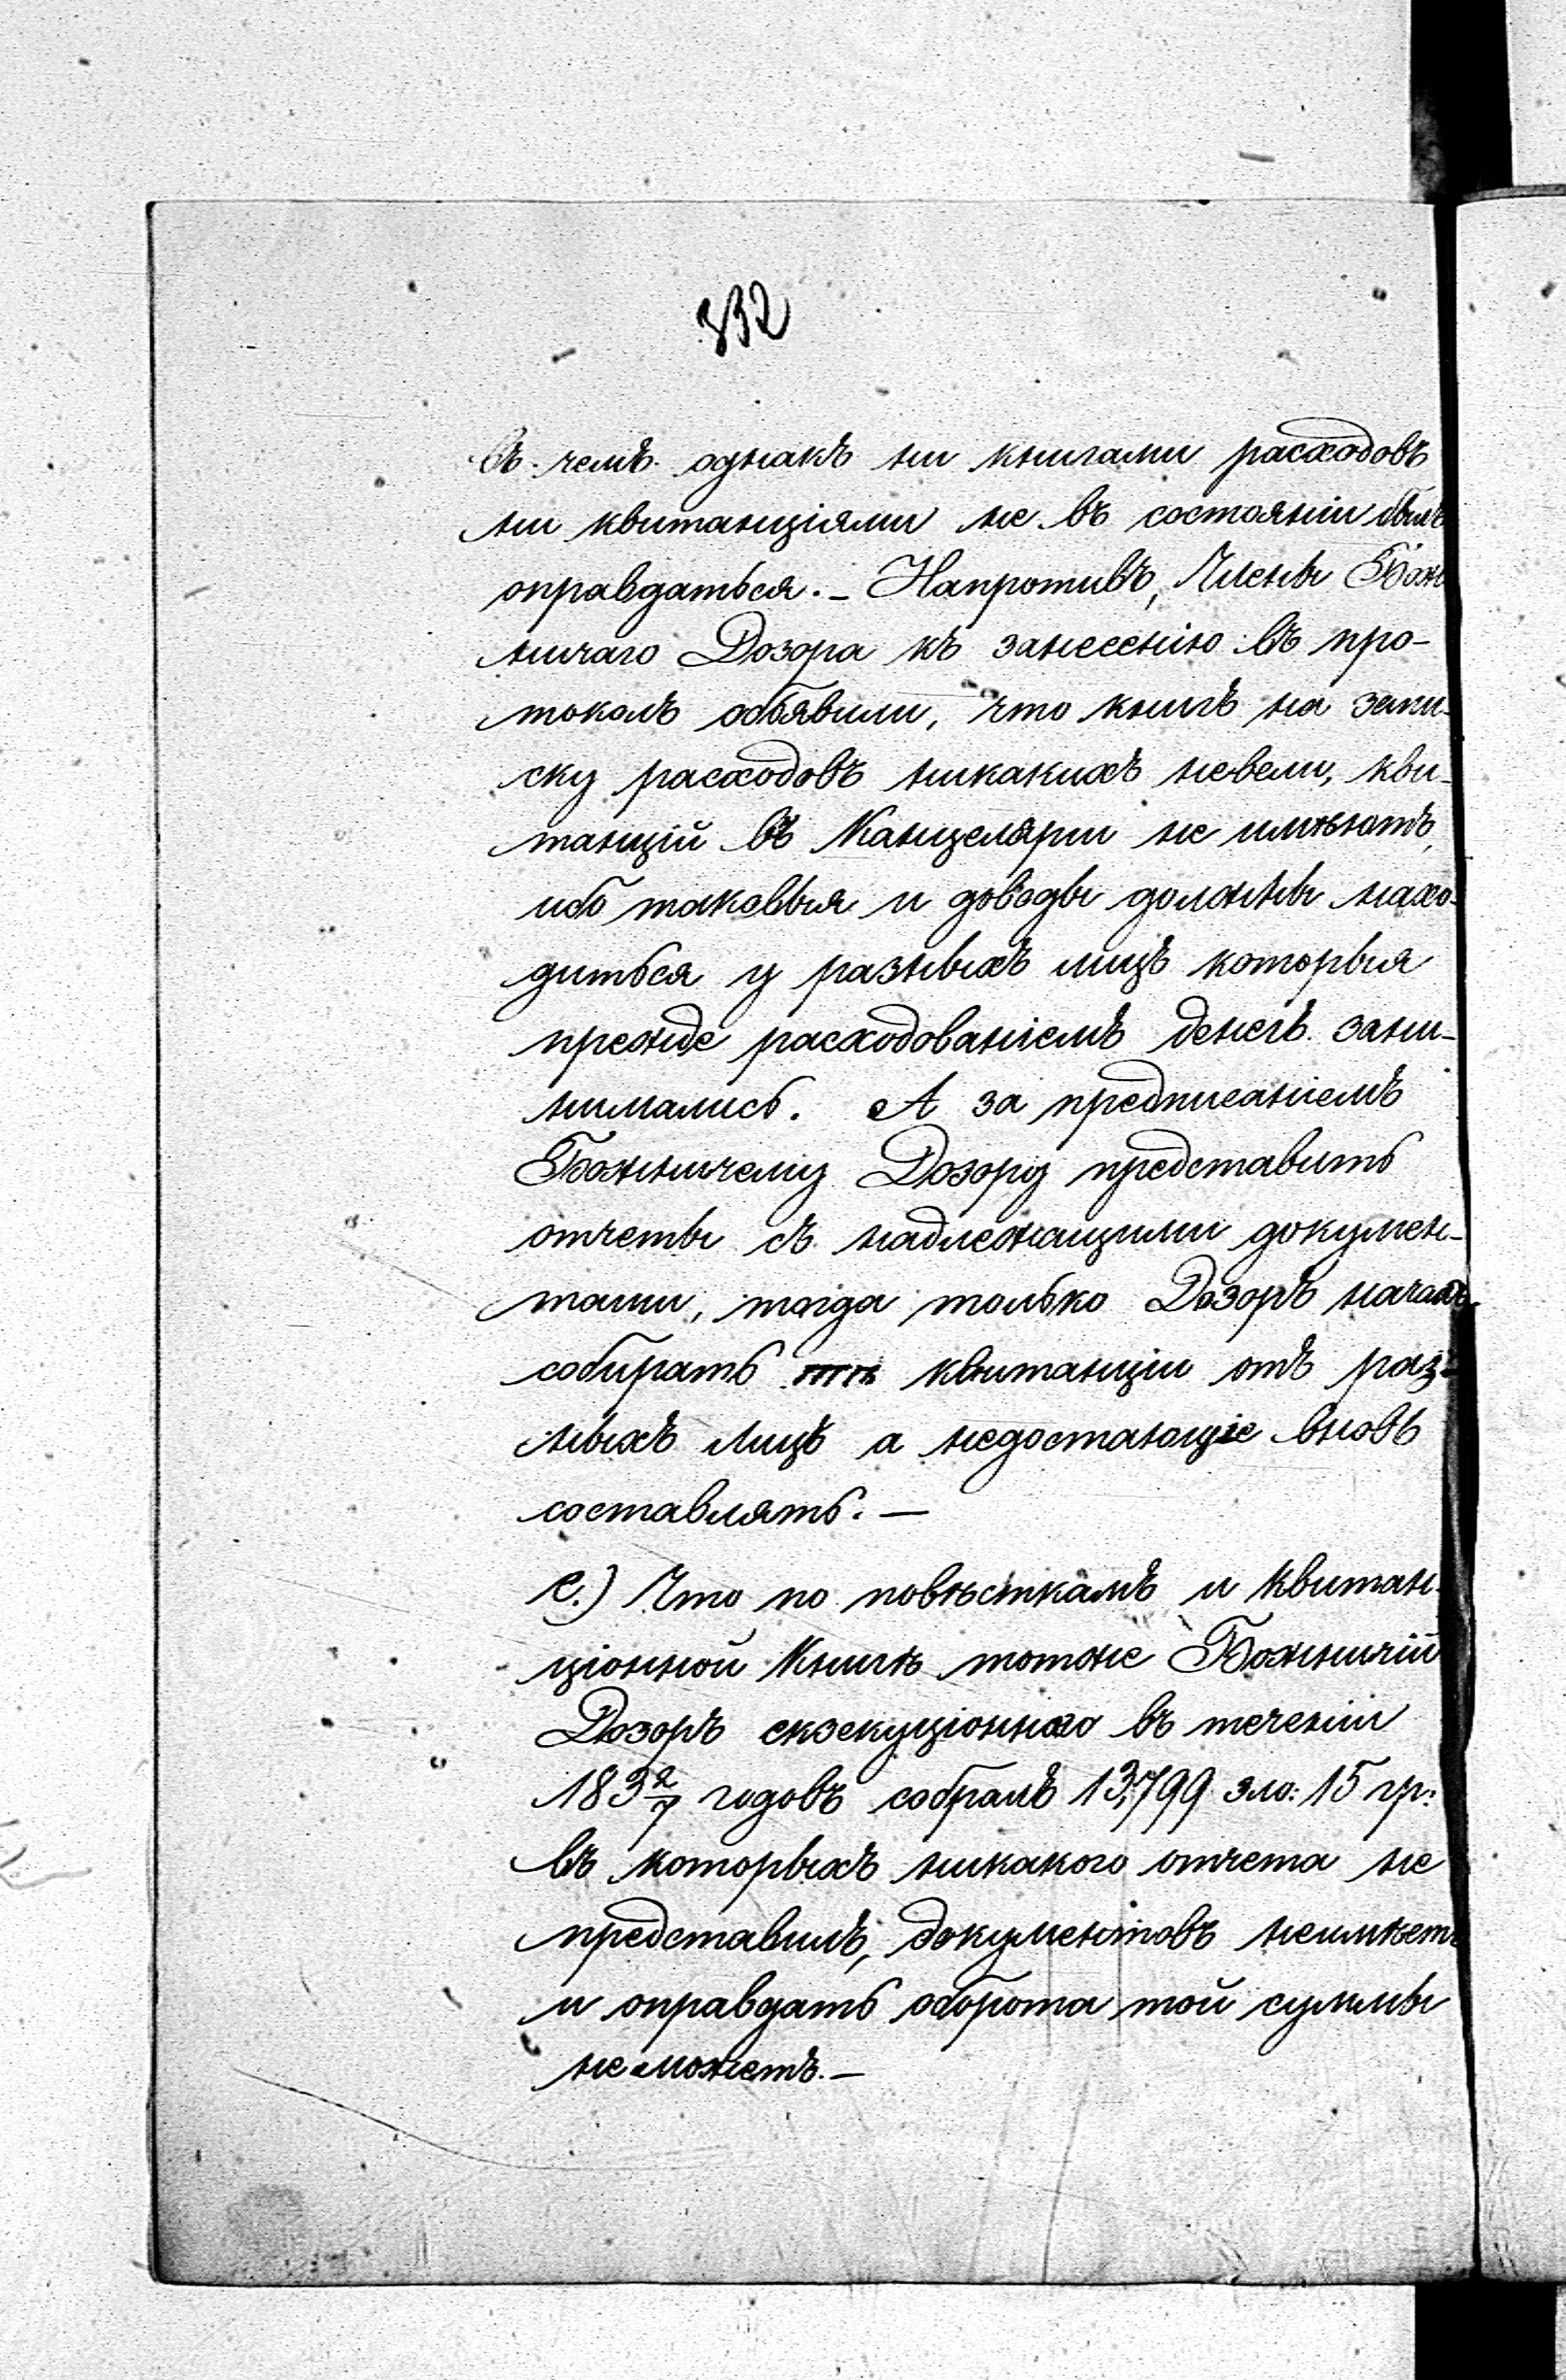 332
Въ чемъ однакъ ни книгами расходовъ
ни квитанціями не въ состояніи былъ
оправдаться. — Напротивъ, Члены Бож
ничаго Дозора къ занесенію въ про-
токолъ объявили, что книгъ на запи-
ску расходовъ никакихъ невели, кви-
танцій въ Канцеляріи не имѣютъ,
ибо таковыя и доводы должны нахо-
диться у разныхъ лицъ которыя
прежде расходованіемъ денегъ зани-
нимались. А за предписаніемъ
Божничему Дозору представить
отчеты съ надлежащими докумен-
тами, тогда только Дозоръ началъ
собирать квитанціи отъ раз-
ныхъ лицъ а недостающіе вновь
составлять. —
е.) Что по повѣсткамъ и квитан-
ціонной Книгѣ тотже Божничій
Дозоръ екзекуціоннаго въ теченіи
183 2/7 годовъ собралъ 13,799 зло: 15 гр:
въ которыхъ никакого отчета не
представилъ, документовъ неимѣетъ
и оправдать оборота той суммы
не можетъ. —